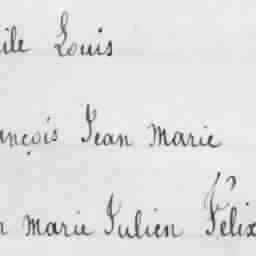 ile Louis
ançois Jean Marie
n Marie Julien Félix